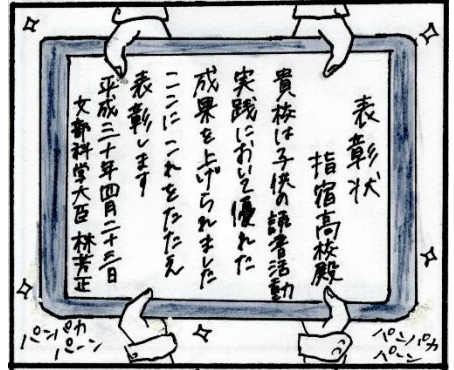 表彰状
指宿高校殿
貴校は子供の読書活動
実践において優れた
成果を上げられました
ここにこれをたたえ
表彰します
平成三十年四月二十三日
文部科学大臣 林芳正
パンパカ
パーン
パンパカ
パーン